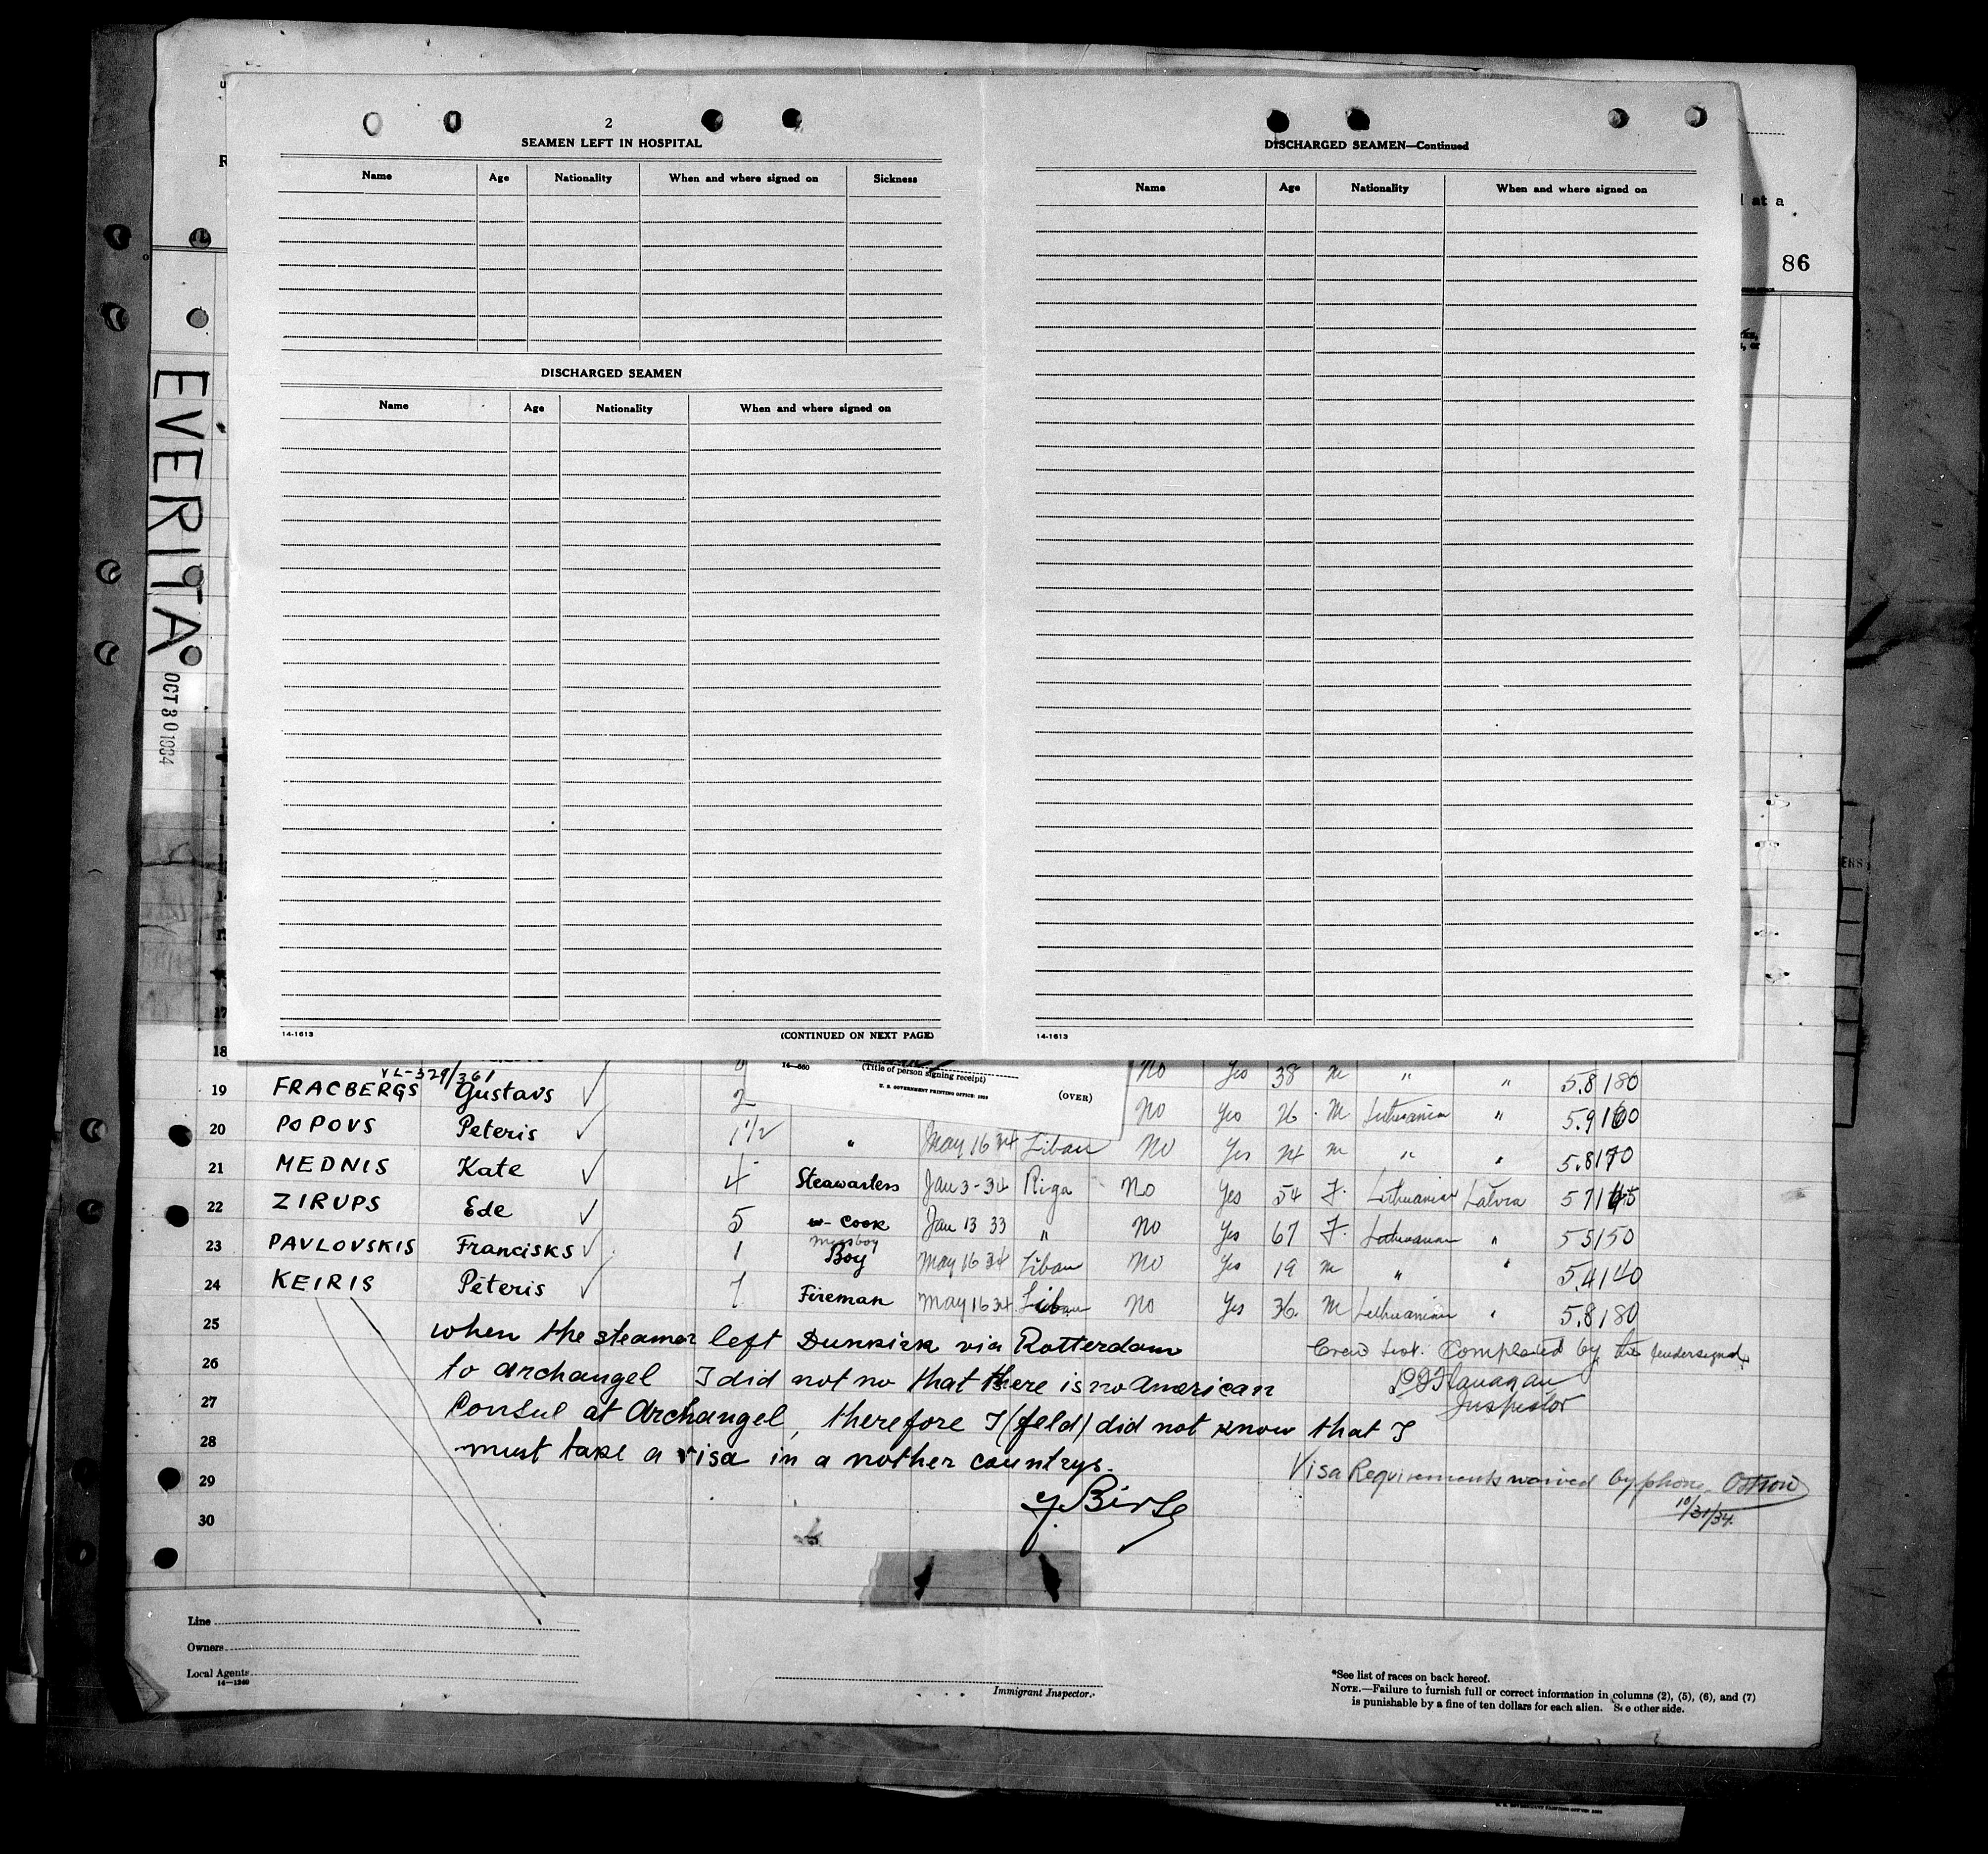 2
SEAMEN LEFT IN HOSPITAL
Name Age Nationality When and where signed on Sickness
DISCHARGED SEAMEN
Name Age Nationality When and where signed on
14-1613 (CONTINUED ON NEXT PAGE)
DISCHARGED SEAMEN—Continued
Name Age Nationality When and where signed on
14-1613
at a
86
EVERITA
OCT 30 1934
18 No Yes 38 M " " 5.8 180
VL-329/361
(Title of person signing receipt)
U. S. GOVERNMENT PRINTING OFFICE
(OVER)
19 FRACBERGS Gustavs ✓ 2 No Yes 26 M Lithuanian " 5.9 160
20 POPOVS Peteris ✓ 1 1/2 " May 16 34 Libau No Yes 24 M " " 5.8 170
21 MEDNIS Kate ✓ 4 Steawartess Jan 3-34 Riga No Yes 54 F. Lithuanian Latvia 5 7 145
22 ZIRUPS Ede ✓ 5 Cook Jan 13 33 " No Yes 67 F. Lithuanian " 5 5 150
messboy
23 PAVLOVSKIS Francisks ✓ 1 Boy May 16 34 Libau No Yes 19 M " " 5.4 140
24 KEIRIS Pēteris ✓ 1 Fireman May 16 34 Libau No Yes 36 M Lithuanian " 5.8 180
25 when the steamer left Dunkirk via Rotterdam
Crew List. Completed by the undersigned.
26 to Archangel I did not no that there is no American
Flanagan
Inspector
27 Consul at Archangel, therefore I (feld) did not know that I
28 must take a visa in a nother countrys.
Visa Requirements waived by phone. Ostrow
10/31/34.
29
30
Line
Owners
Local Agents
14—1240
Immigrant Inspector.
*See list of races on back hereof.
NOTE.—Failure to furnish full or correct information in columns (2), (5), (6), and (7)
is punishable by a fine of ten dollars for each alien. See other side.